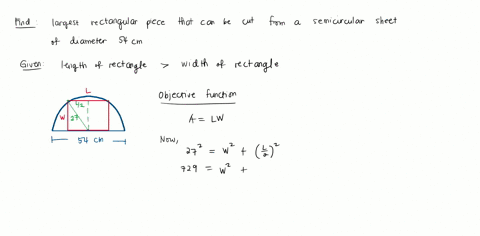 Find : largest rectangular piece that can be cut from a semicircular sheet
of diameter 54 cm
Given : length of rectangle > width of rectangle
L
L/2
W
27
54 cm
Objective function
A = LW
Now,
27² = W² + (L/2)²
729 = W² +